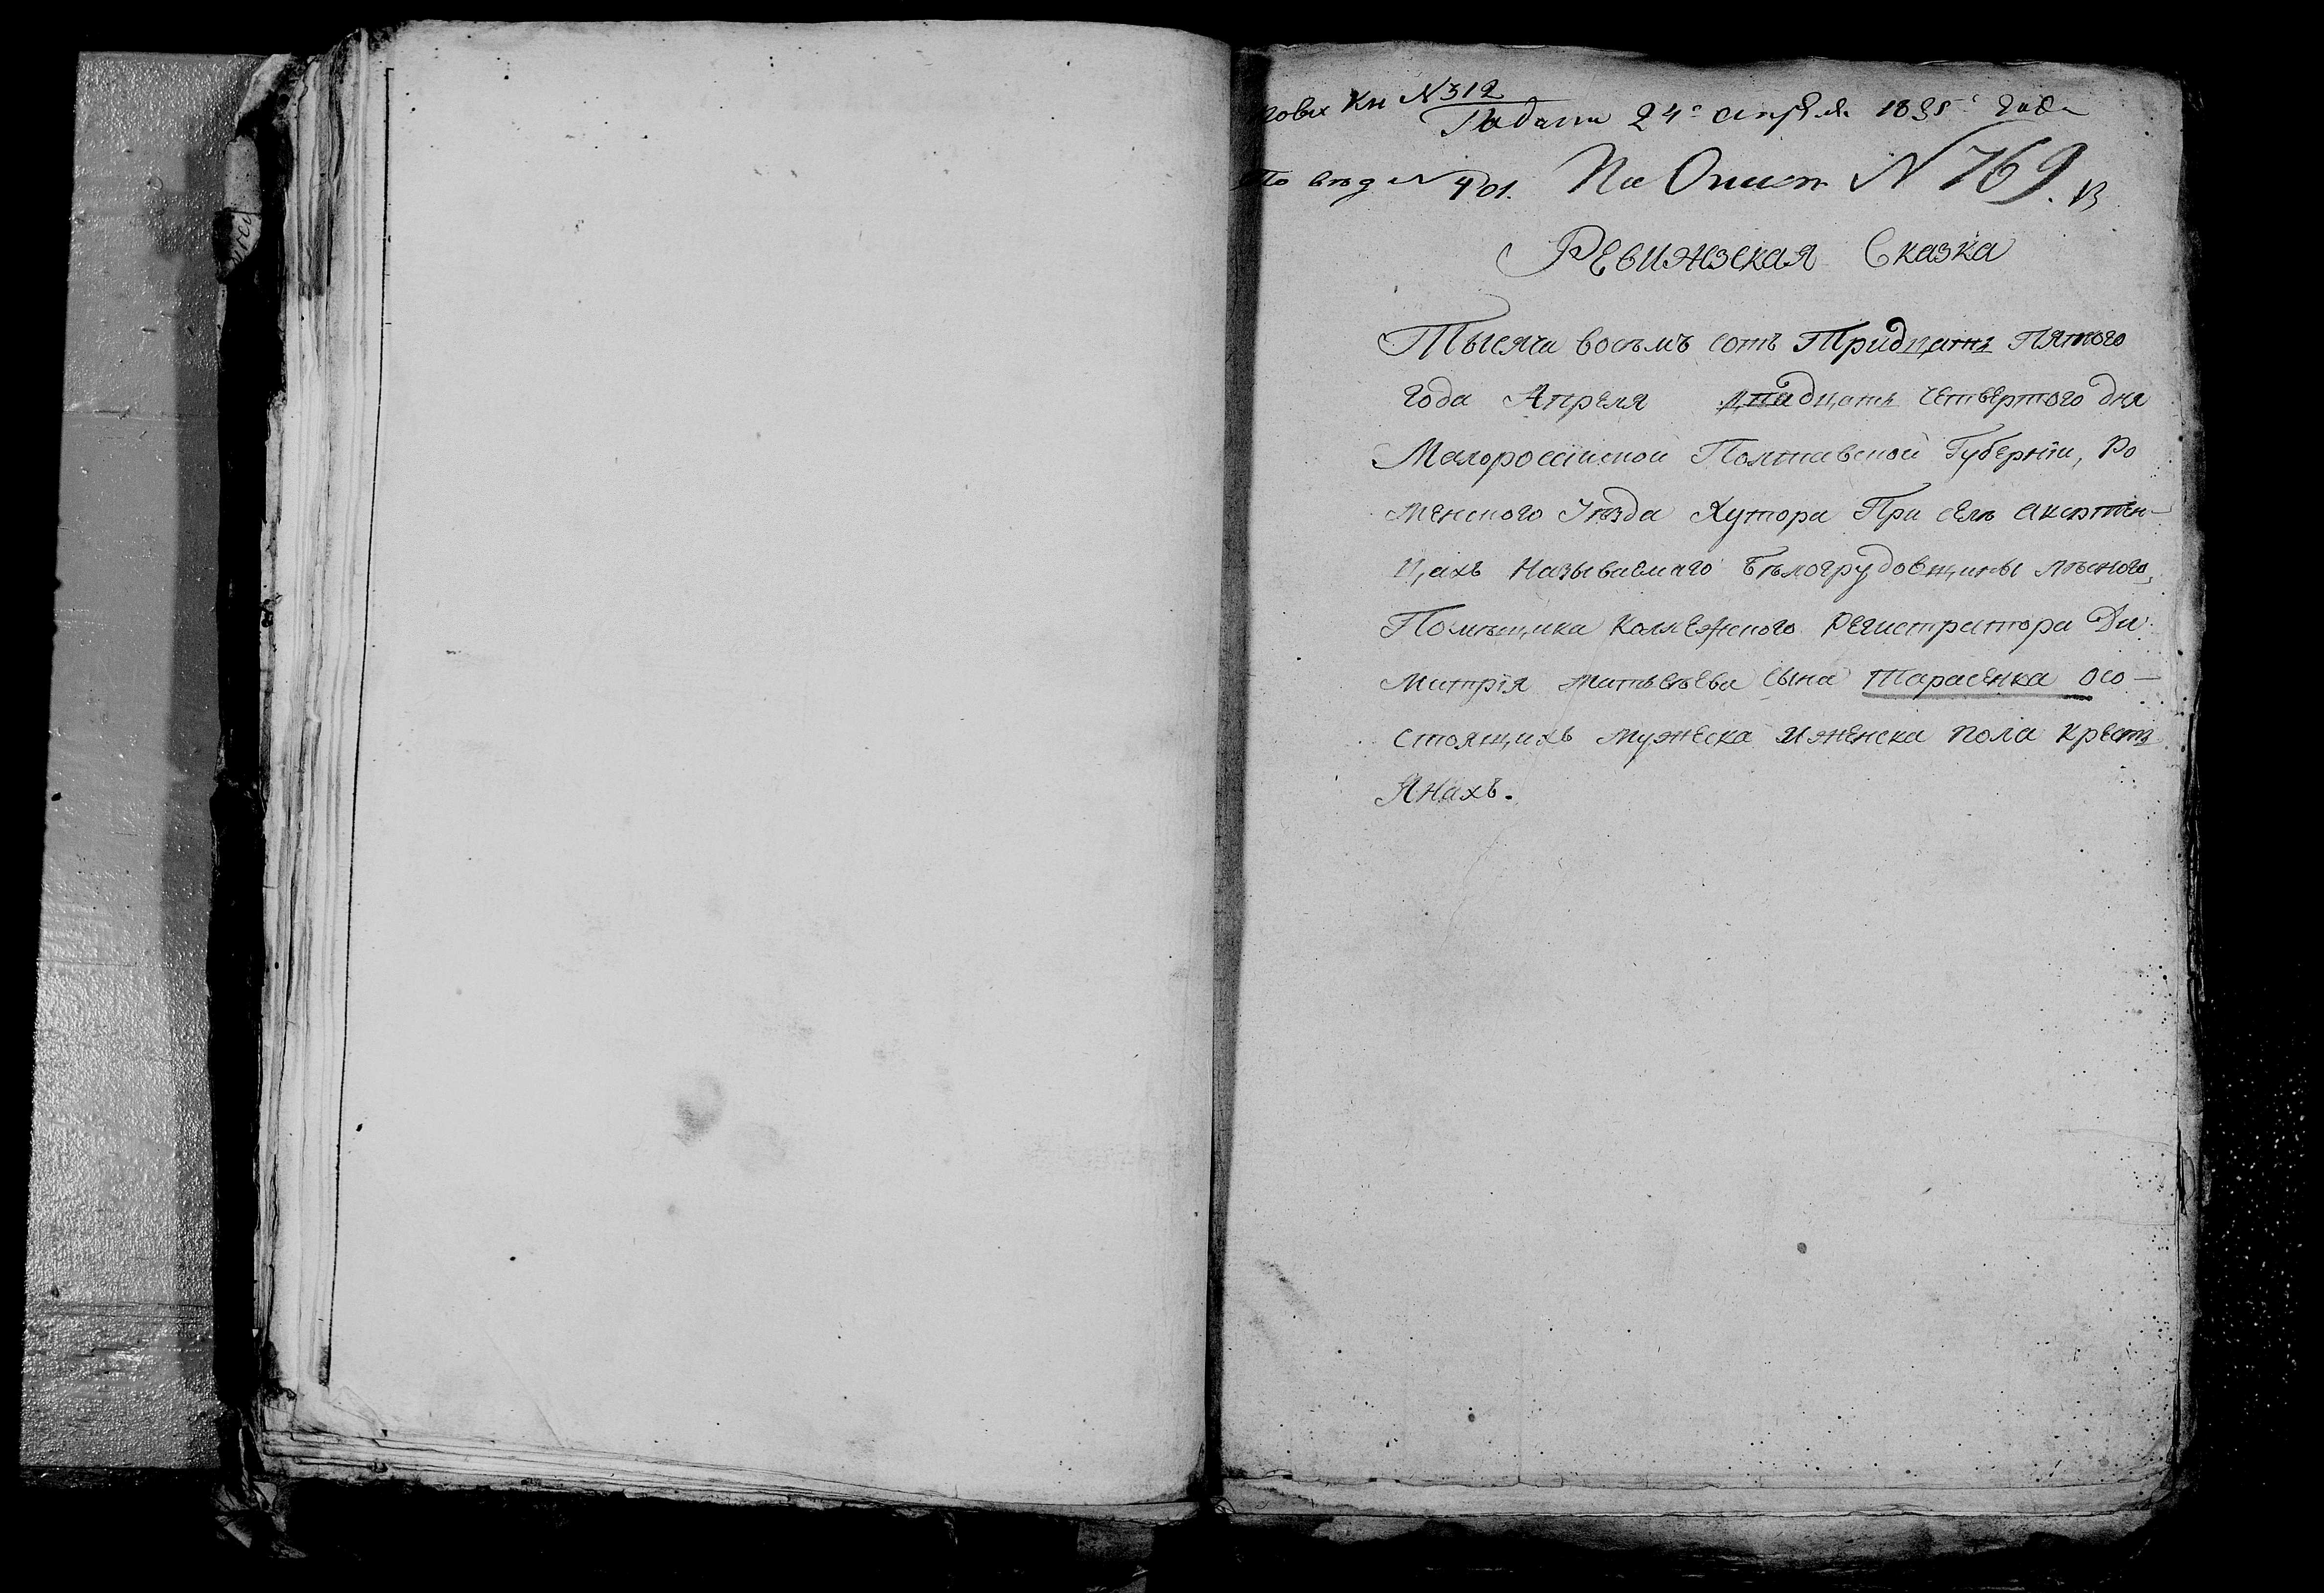 новых Кн N 312
Подана 24го апреля 1835 года
По вѣд N 401. По Описи N 769.
РЕВИЖЗСКАЯ Сказка
Тысяча восѣмъ сотъ Тридцать Пятого
года Апреля двадцать четвертого дня
Малороссійской Полтавской Губерніи, Ро
менского Уѣзда Хутора При селѣ Аксютен-
цахъ Называемаго Бѣлогрудовщины Лѣсного,
Помѣщика Коллежского Регистратора Ди
митрія Матвѣева сына Тарасенка осо-
стоящихъ мужеска Иженска пола крестъ
Янахъ.